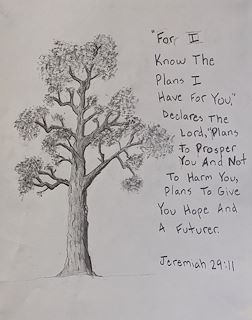 "For I
Know The
Plans I
Have For You,"
Declares The
Lord, "Plans
To Prosper
You And Not
To Harm You,
Plans To Give
You Hope And
A Futurer.
Jeremiah 29:11